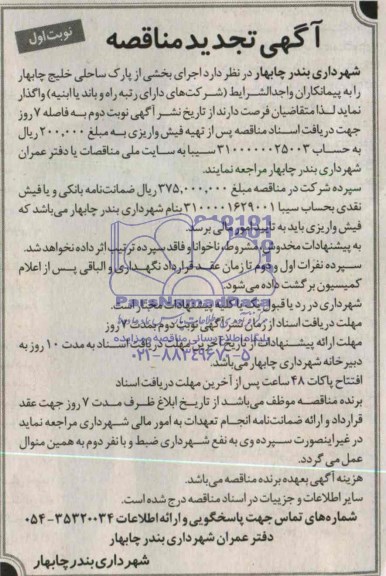 نوبت اول
آگهی تجدید مناقصه
شهرداری بندر چابهار در نظر دارد اجرای بخشی از پارک ساحلی خلیج چابهار
را به پیمانکاران واجدالشرایط (شرکت‌های دارای رتبه راه و باند یا ابنیه) واگذار
نماید لذا متقاضیان فرصت دارند از تاریخ نشر آگهی نوبت دوم به فاصله ۷ روز
جهت دریافت اسناد مناقصه پس از تهیه فیش واریزی به مبلغ ۲۰۰,۰۰۰ ریال
به حساب ۳۱۰۰۰۰۰۰۲۵۰۰۳ سیبا به سایت ملی مناقصات یا دفتر عمران
شهرداری بندر چابهار مراجعه نمایند.
سپرده شرکت در مناقصه مبلغ ۳۷۵,۰۰۰,۰۰۰ ریال ضمانت‌نامه بانکی و یا فیش
نقدی بحساب سیبا ۳۱۰۰۰۰۱۶۲۹۰۰۱ بنام شهرداری بندر چابهار می‌باشد که
فیش واریزی باید به تایید امور مالی برسد.
به پیشنهادات مخدوش، مشروط، ناخوانا و فاقد سپرده ترتیب اثر داده نخواهد شد.
سپرده نفرات اول و دوم تا زمان عقد قرارداد نگهداری و الباقی پس از اعلام
کمیسیون برگشت داده می‌شود.
شهرداری در رد یا قبول یک یا کلیه پیشنهادات مختار است.
مهلت دریافت اسناد از زمان نشر آگهی نوبت دوم بمدت ۷ روز
مهلت ارائه پیشنهادات از تاریخ آخرین مهلت دریافت اسناد به مدت ۱۰ روز به
دبیرخانه شهرداری چابهار می‌باشد.
افتتاح پاکات ۴۸ ساعت پس از آخرین مهلت دریافت اسناد
برنده مناقصه موظف می‌باشد از تاریخ ابلاغ ظرف مدت ۷ روز جهت عقد
قرارداد و ارائه ضمانت‌نامه انجام تعهدات به امور مالی شهرداری مراجعه نماید
در غیر اینصورت سپرده وی به نفع شهرداری ضبط و با نفر دوم به همین منوال
عمل می گردد.
هزینه آگهی بعهده برنده مناقصه می‌باشد.
سایر اطلاعات و جزییات در اسناد مناقصه درج شده است.
شماره‌های تماس جهت پاسخگویی و ارائه اطلاعات ۳۵۳۲۰۰۳۴-۰۵۴
دفتر عمران شهرداری بندر چابهار
شهرداری بندر چابهار
پایگاه اطلاع رسانی مناقصه و مزایده
۰۲۱-۸۸۳۴۹۶۷۰-۵